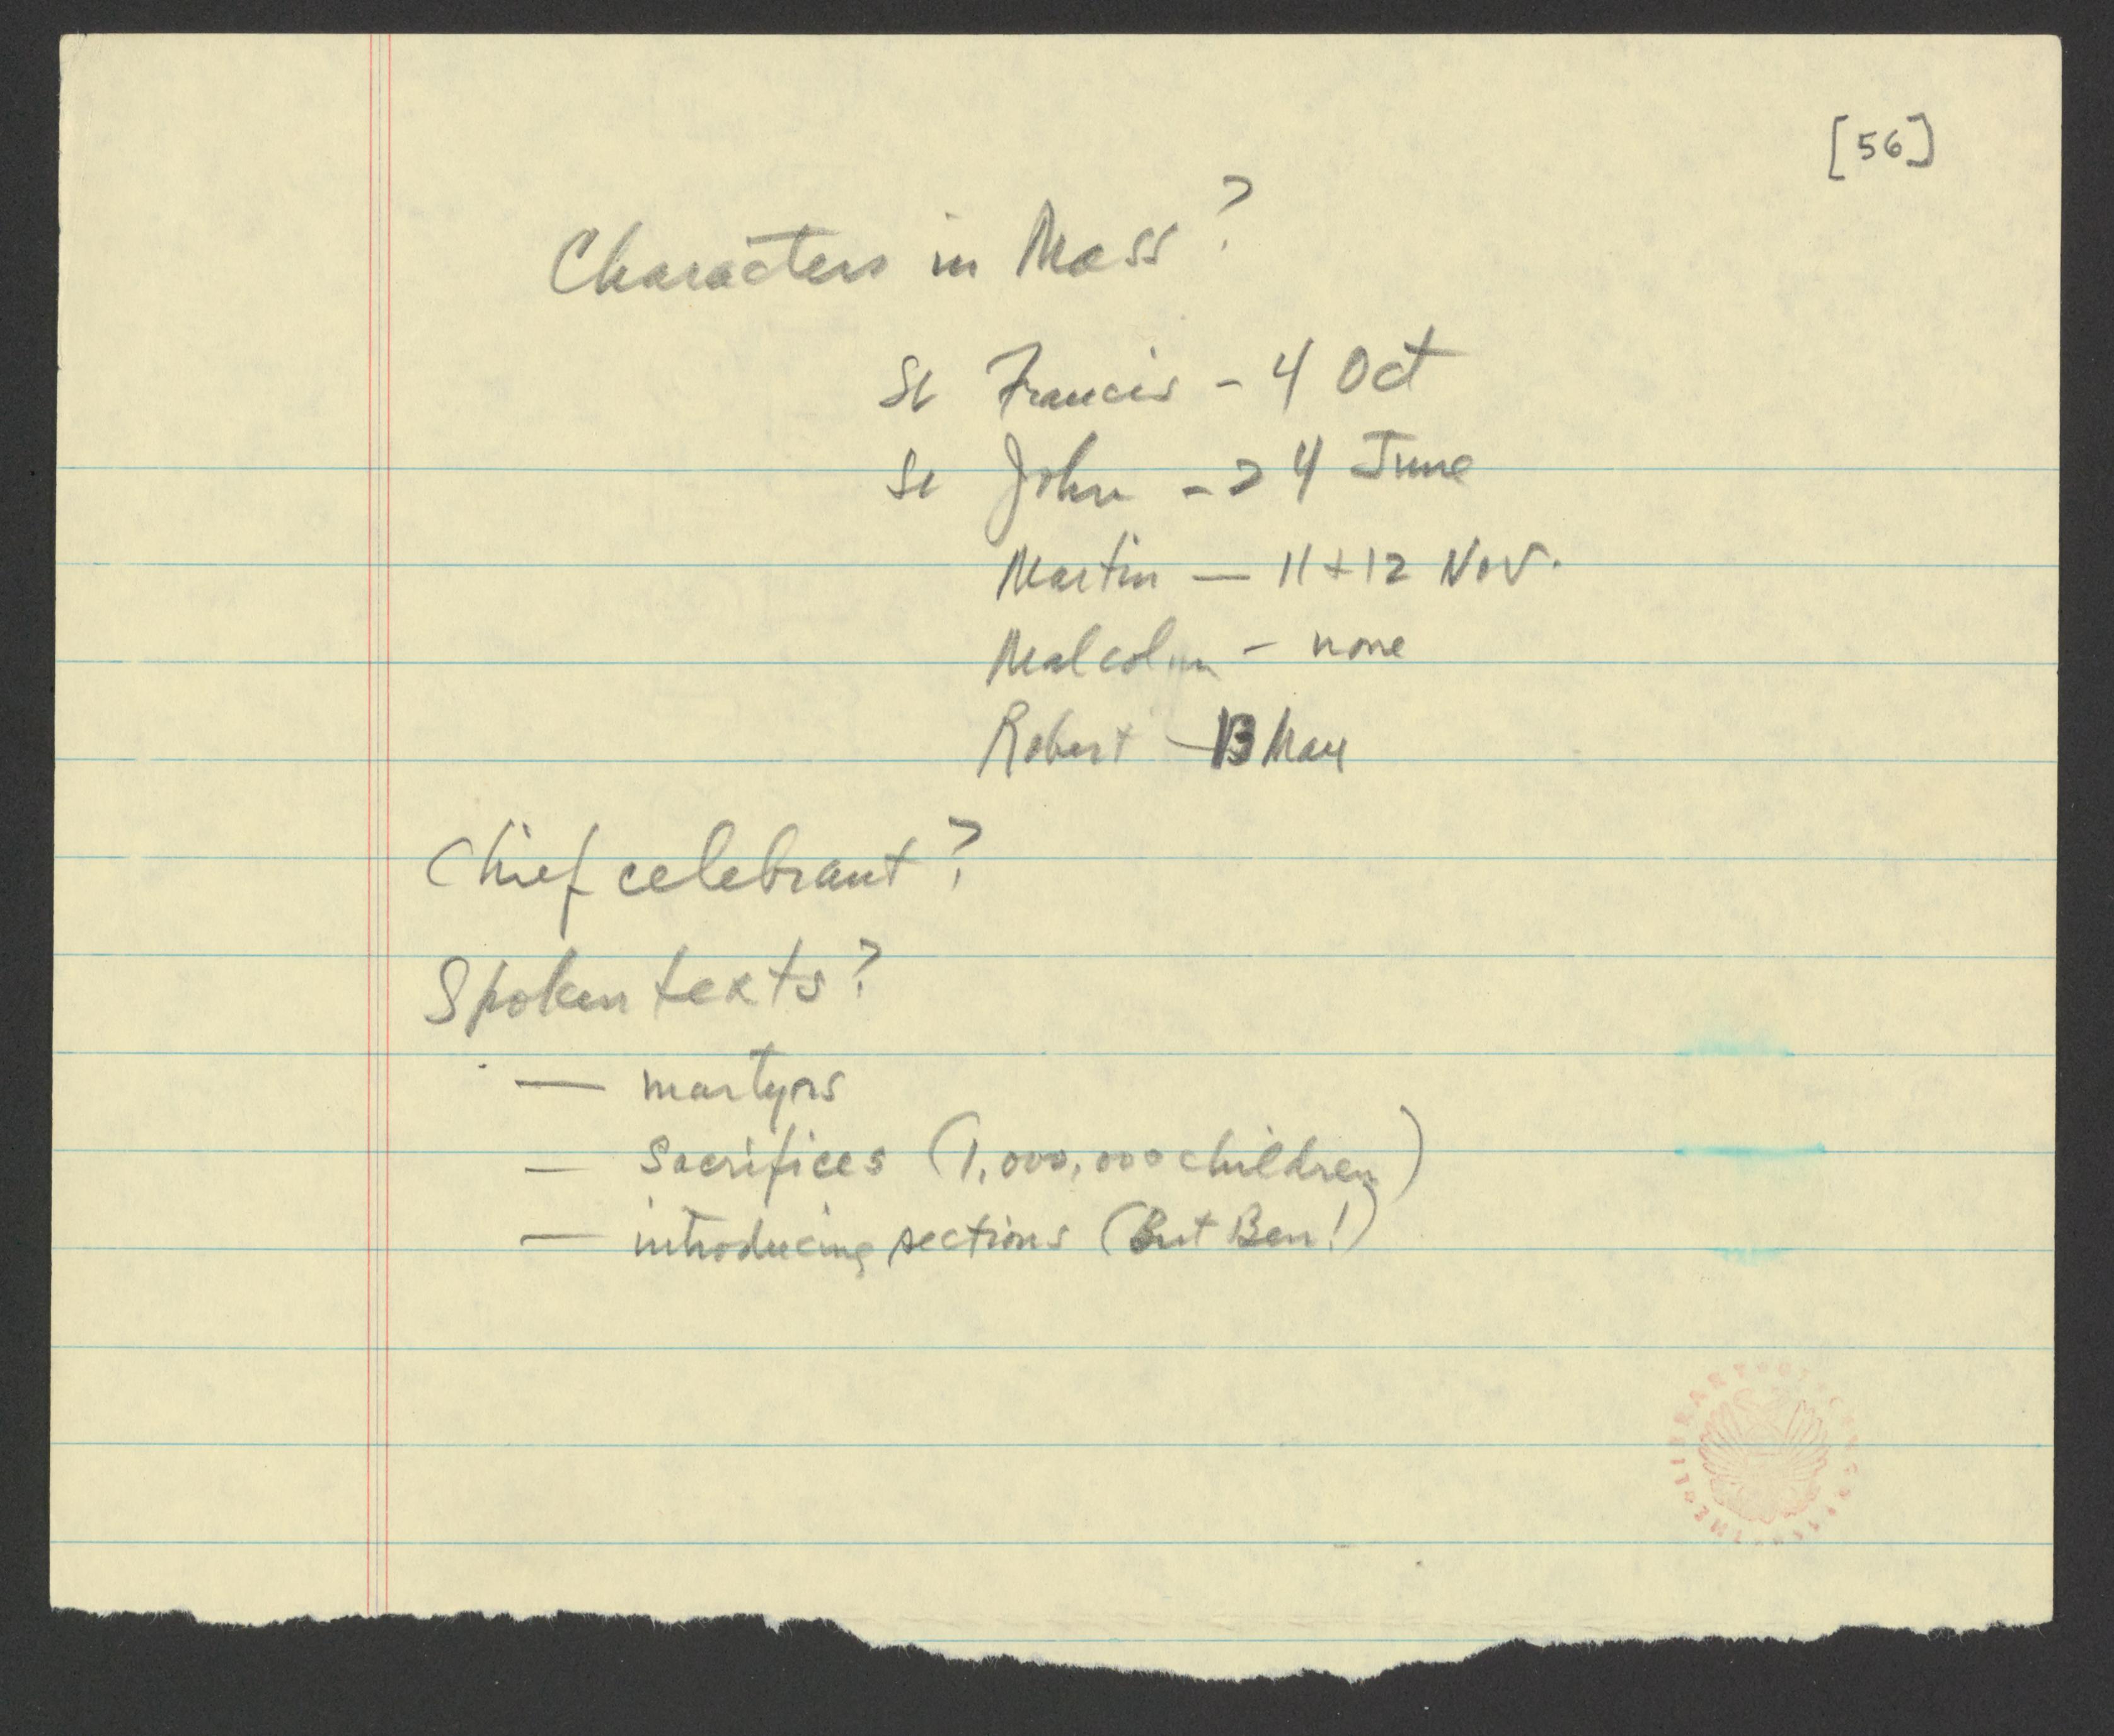 [56]
Characters in Mass?
St Francis - 4 Oct
St John - 24 June
Martin — 11 + 12 Nov.
Malcolm - none
Robert - 13 May
Chief celebrant?
Spoken texts?
— martyrs
— sacrifices (1,000,000 children)
— introducing sections (But Ben!)